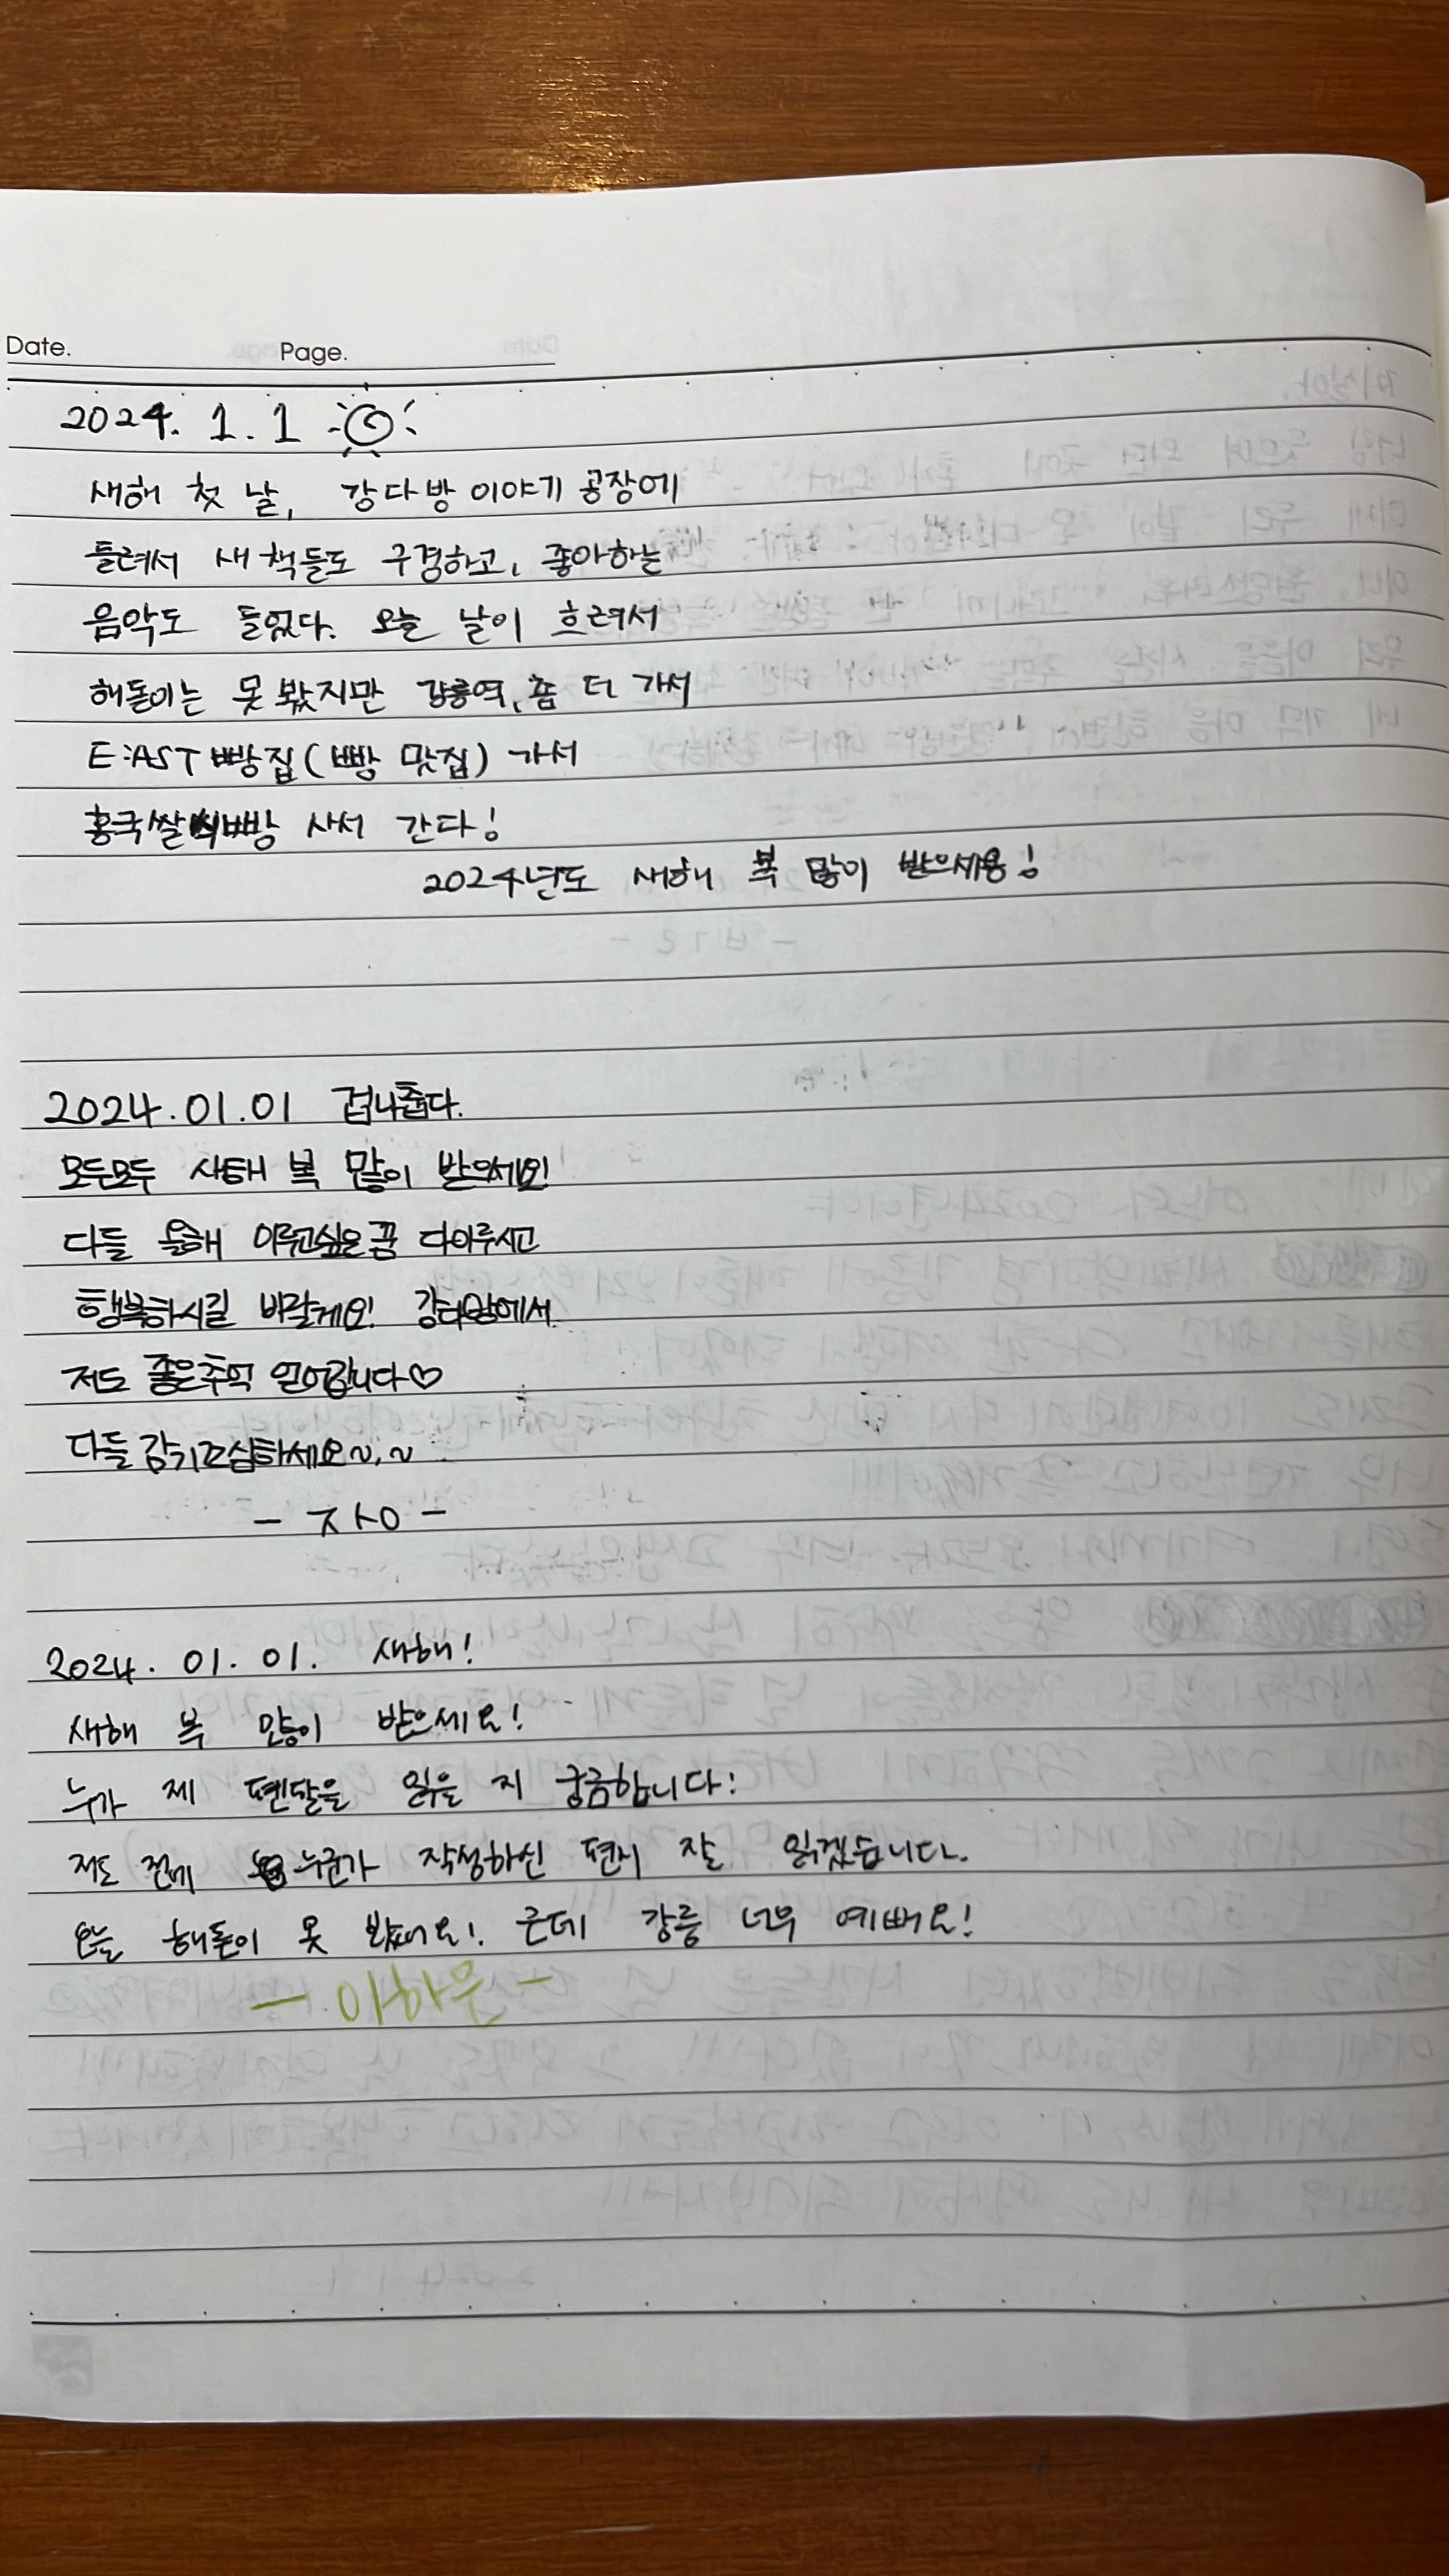 Date. Page.
2024. 1. 1
새해 첫 날, 강다방 이야기 공장에
들려서 새 책들도 구경하고, 좋아하는
음악도 들었다. 오늘 날이 흐려서
해돋이는 못 봤지만 강릉역, 좀 더 가서
E:AST 빵집(빵 맛집) 가서
홍국쌀빵 사서 간다!
2024년도 새해 복 많이 받으세용!
2024.01.01 겁나춥다.
모두모두 새해 복 많이 받으세요!
다들 올해 이루고싶은 꿈 다이루시고
행복하시길 바랄게요! 강다방에서
저도 좋은추억 얻어갑니다♡
다들 감기조심하세요~.~
- ㅈㅅㅇ -
2024. 01. 01. 새해!
새해 복 많이 받으세요!
누가 제 펜달을 읽을 지 궁금합니다!
저도 전에 누군가 작성하신 편지 잘 읽겠습니다.
오늘 해돋이 못 봤어요! 근데 강릉 너무 예뻐요!
- 이하은 -